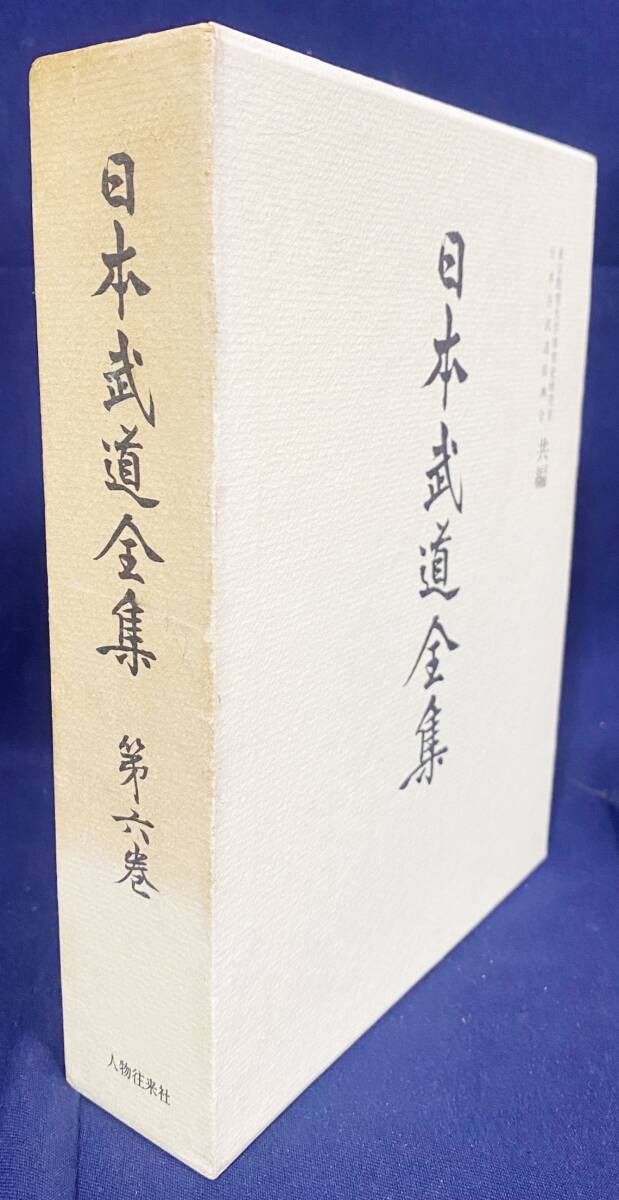 日本武道全集
第六巻
人物往来社
日本武道全集
共編